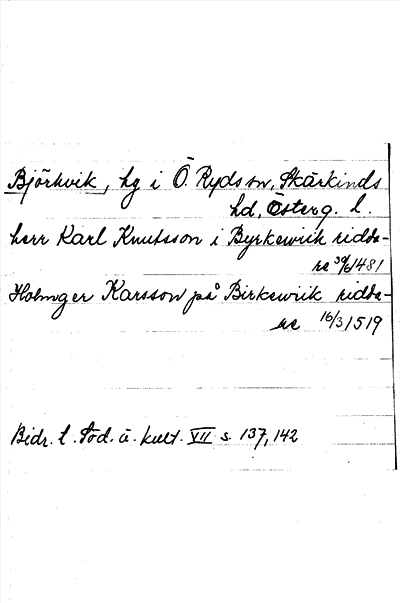 Björkvik, hg i Ö. Ryds sn, Skärkinds
hd, Österg. l.
herr Karl Knutsson i Byrkewiik ridda-
re 30/6 1481
Holmger Karsson på Birkewiik ridda-
re 16/3 1519
Bidr. t. Söd. ä. kult. VII s. 137, 142